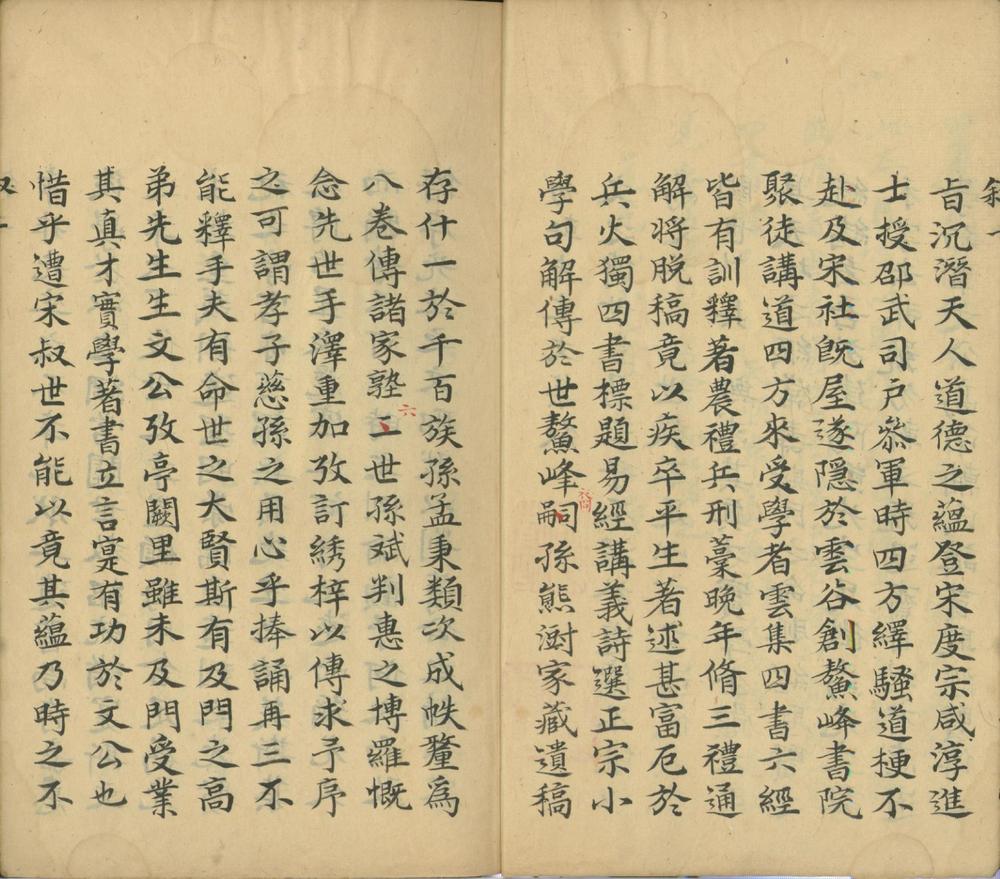 敘一
旨沉潛天人道德之蘊登宋度宗咸淳進
士授邵武司户叅軍時四方繹騷道梗不
赴及宋社旣屋遂隱於雲谷創鰲峰書院
聚徒講道四方來受學者雲集四書六經
皆有訓釋著農禮兵刑藁晚年脩三禮通
解將脱稿竟以疾卒平生著述甚富厄於
兵火獨四書標題易經講義詩選正宗小
學句解傳於世鰲峰嗣孫熊澍家藏遺稿
存什一於千百族孫孟秉類次成帙釐為
八卷傳諸家塾二世孫斌判惠之博羅慨
六
念先世手澤重加攷訂綉梓以傳求予序
之可謂孝子慈孫之用心乎捧誦再三不
能釋手夫有命世之大賢斯有及門之高
弟先生生文公攷亭闕里雖未及門受業
其真才實學著書立言寔有功於文公也
惜乎遭宋叔世不能以竟其蘊乃時之不